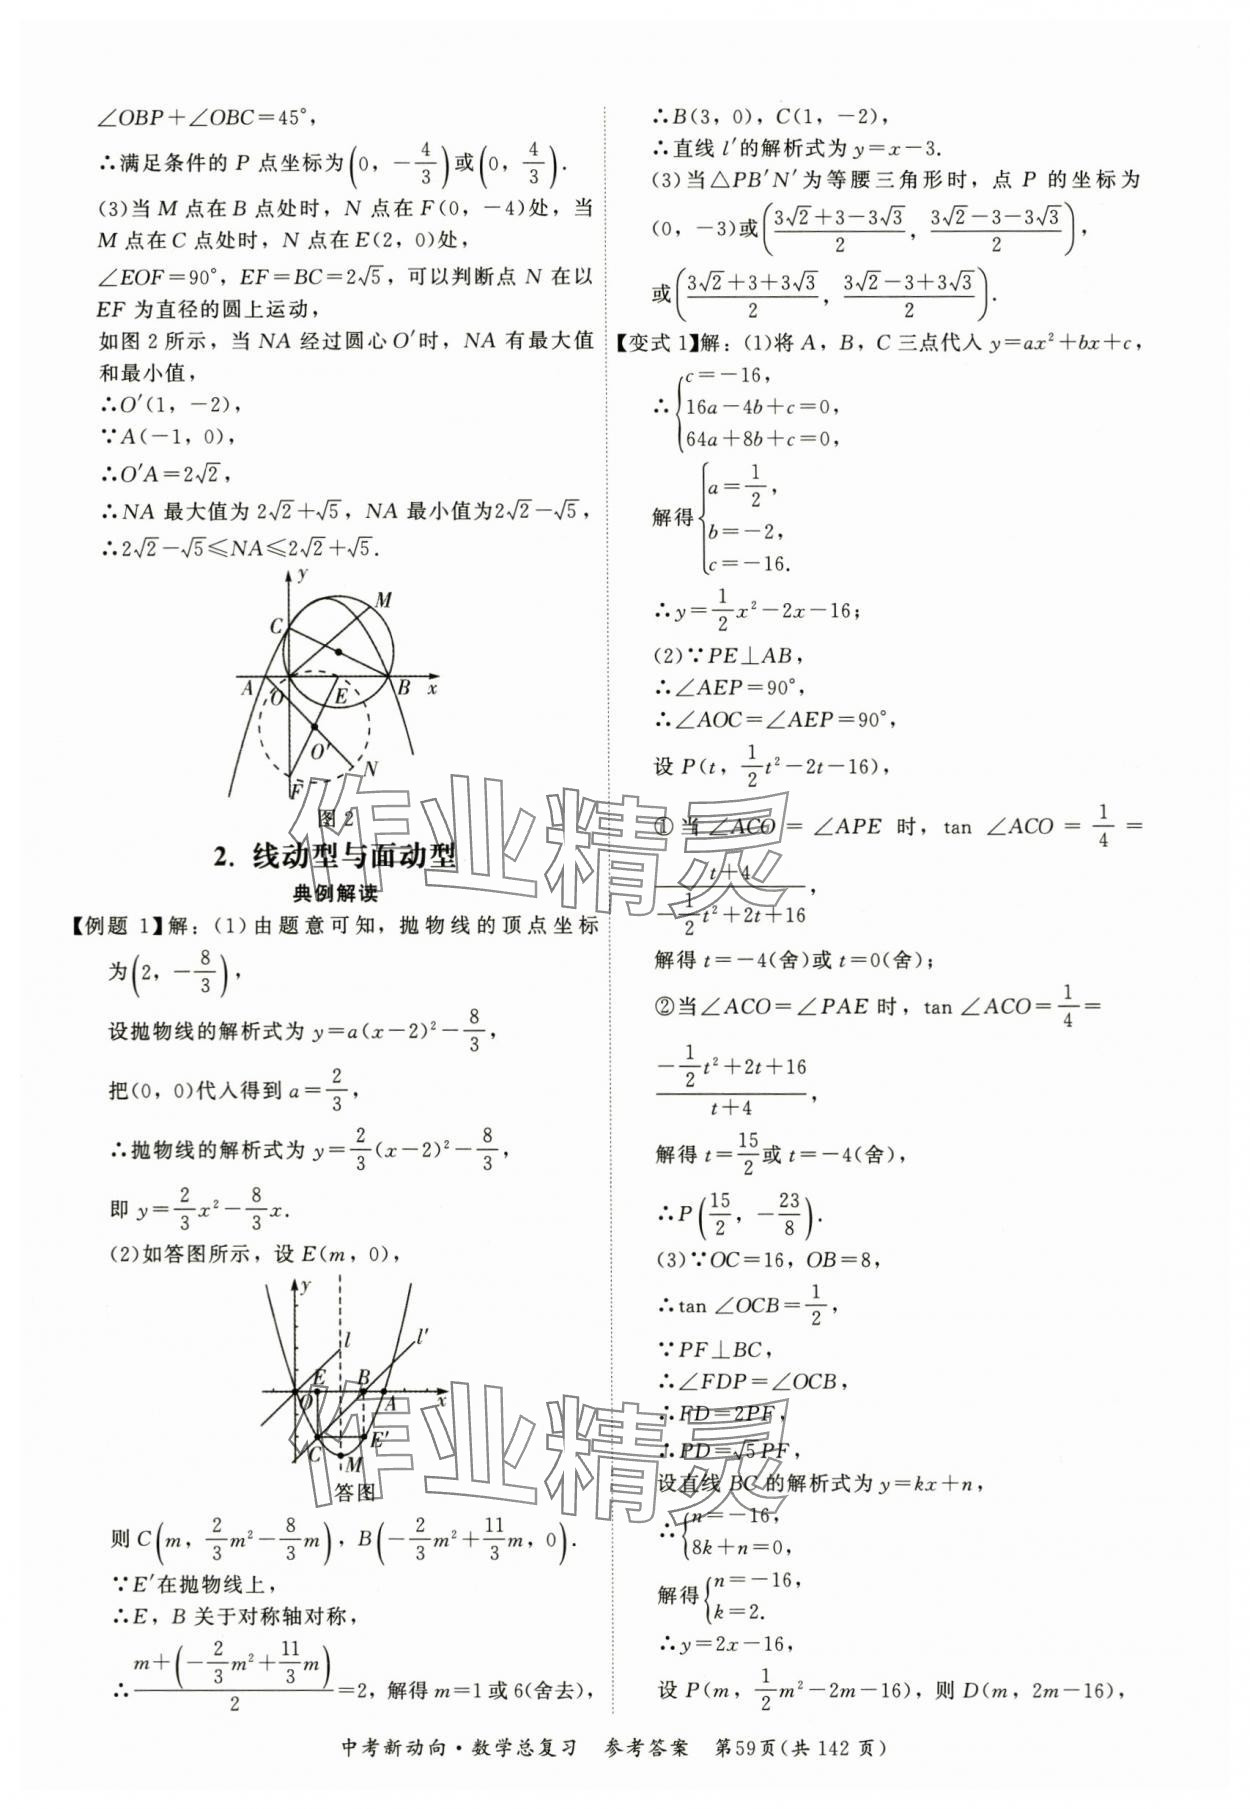 ∠OBP+∠OBC=45°,
∴满足条件的 P 点坐标为(0, -4/3)或(0, 4/3).
(3)当 M 点在 B 点处时, N 点在 F(0, -4)处, 当
M 点在 C 点处时, N 点在 E(2, 0)处,
∠EOF=90°, EF=BC=2√5, 可以判断点 N 在以
EF 为直径的圆上运动,
如图 2 所示, 当 NA 经过圆心 O′时, NA 有最大值
和最小值,
∴O′(1, -2),
∵A(-1, 0),
∴O′A=2√2,
∴NA 最大值为 2√2+√5, NA 最小值为2√2-√5,
∴2√2-√5≤NA≤2√2+√5.
y
M
C
A O E B x
O′
N
F
图 2
2. 线动型与面动型
典例解读
【例题 1】解: (1)由题意可知, 抛物线的顶点坐标
为(2, -8/3),
设抛物线的解析式为 y=a(x-2)²-8/3,
把(0, 0)代入得到 a=2/3,
∴抛物线的解析式为 y=2/3(x-2)²-8/3,
即 y=2/3x²-8/3x.
(2)如答图所示, 设 E(m, 0),
y
l l′
E B
O A x
C E′
M
答图
则 C(m, 2/3m²-8/3m), B(-2/3m²+11/3m, 0).
∵E′在抛物线上,
∴E, B 关于对称轴对称,
∴(m+(-2/3m²+11/3m))/2=2, 解得 m=1 或 6(舍去),
∴B(3, 0), C(1, -2),
∴直线 l′的解析式为 y=x-3.
(3)当△PB′N′为等腰三角形时, 点 P 的坐标为
(0, -3)或((3√2+3-3√3)/2, (3√2-3-3√3)/2),
或((3√2+3+3√3)/2, (3√2-3+3√3)/2).
【变式 1】解: (1)将 A, B, C 三点代入 y=ax²+bx+c,
∴{c=-16,
16a-4b+c=0,
64a+8b+c=0,
解得{a=1/2,
b=-2,
c=-16.
∴y=1/2x²-2x-16;
(2)∵PE⊥AB,
∴∠AEP=90°,
∴∠AOC=∠AEP=90°,
设 P(t, 1/2t²-2t-16),
①当 ∠ACO = ∠APE 时, tan ∠ACO = 1/4 =
(t+4)/(-1/2t²+2t+16),
解得 t=-4(舍)或 t=0(舍);
②当∠ACO=∠PAE 时, tan ∠ACO=1/4=
(-1/2t²+2t+16)/(t+4),
解得 t=15/2或 t=-4(舍),
∴P(15/2, -23/8).
(3)∵OC=16, OB=8,
∴tan ∠OCB=1/2,
∵PF⊥BC,
∴∠FDP=∠OCB,
∴FD=2PF,
∴PD=√5PF,
设直线 BC 的解析式为 y=kx+n,
∴{n=-16,
8k+n=0,
解得{n=-16,
k=2.
∴y=2x-16,
设 P(m, 1/2m²-2m-16), 则 D(m, 2m-16),
中考新动向·数学总复习 参考答案 第59页(共 142 页)
作业精灵
作业精灵